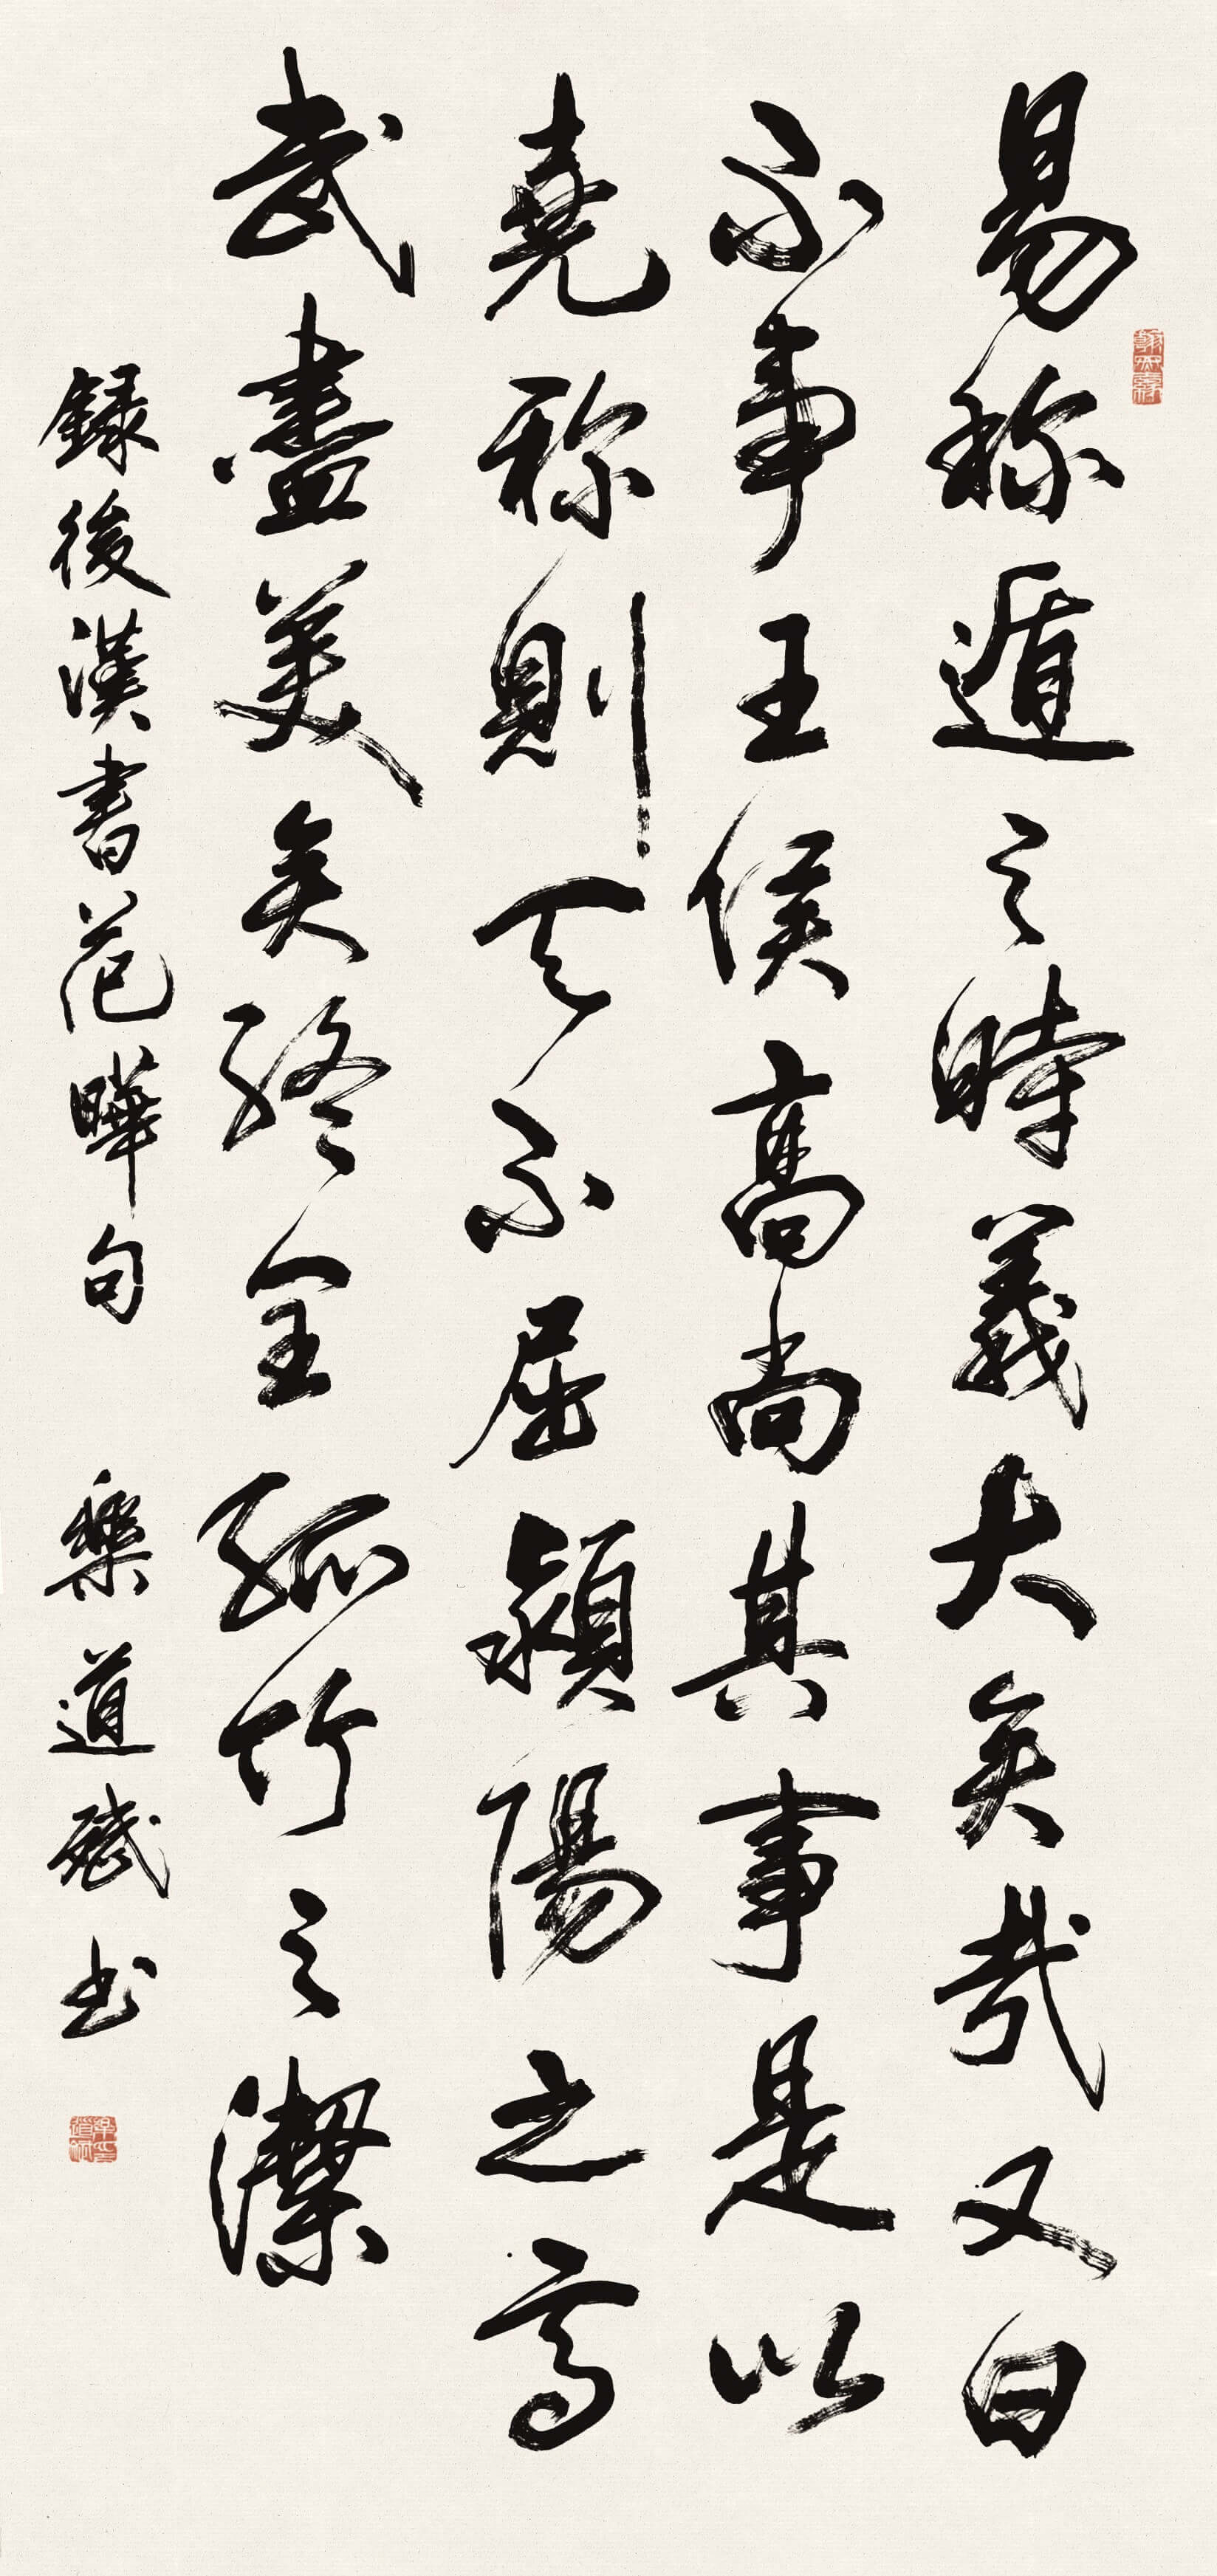 易称遁之時義大矣哉又曰
不事王侯高尚其事是以
堯称則天不屈潁陽之高
武盡美矣終全孤竹之潔
錄後漢書范曄句 樂道斌书